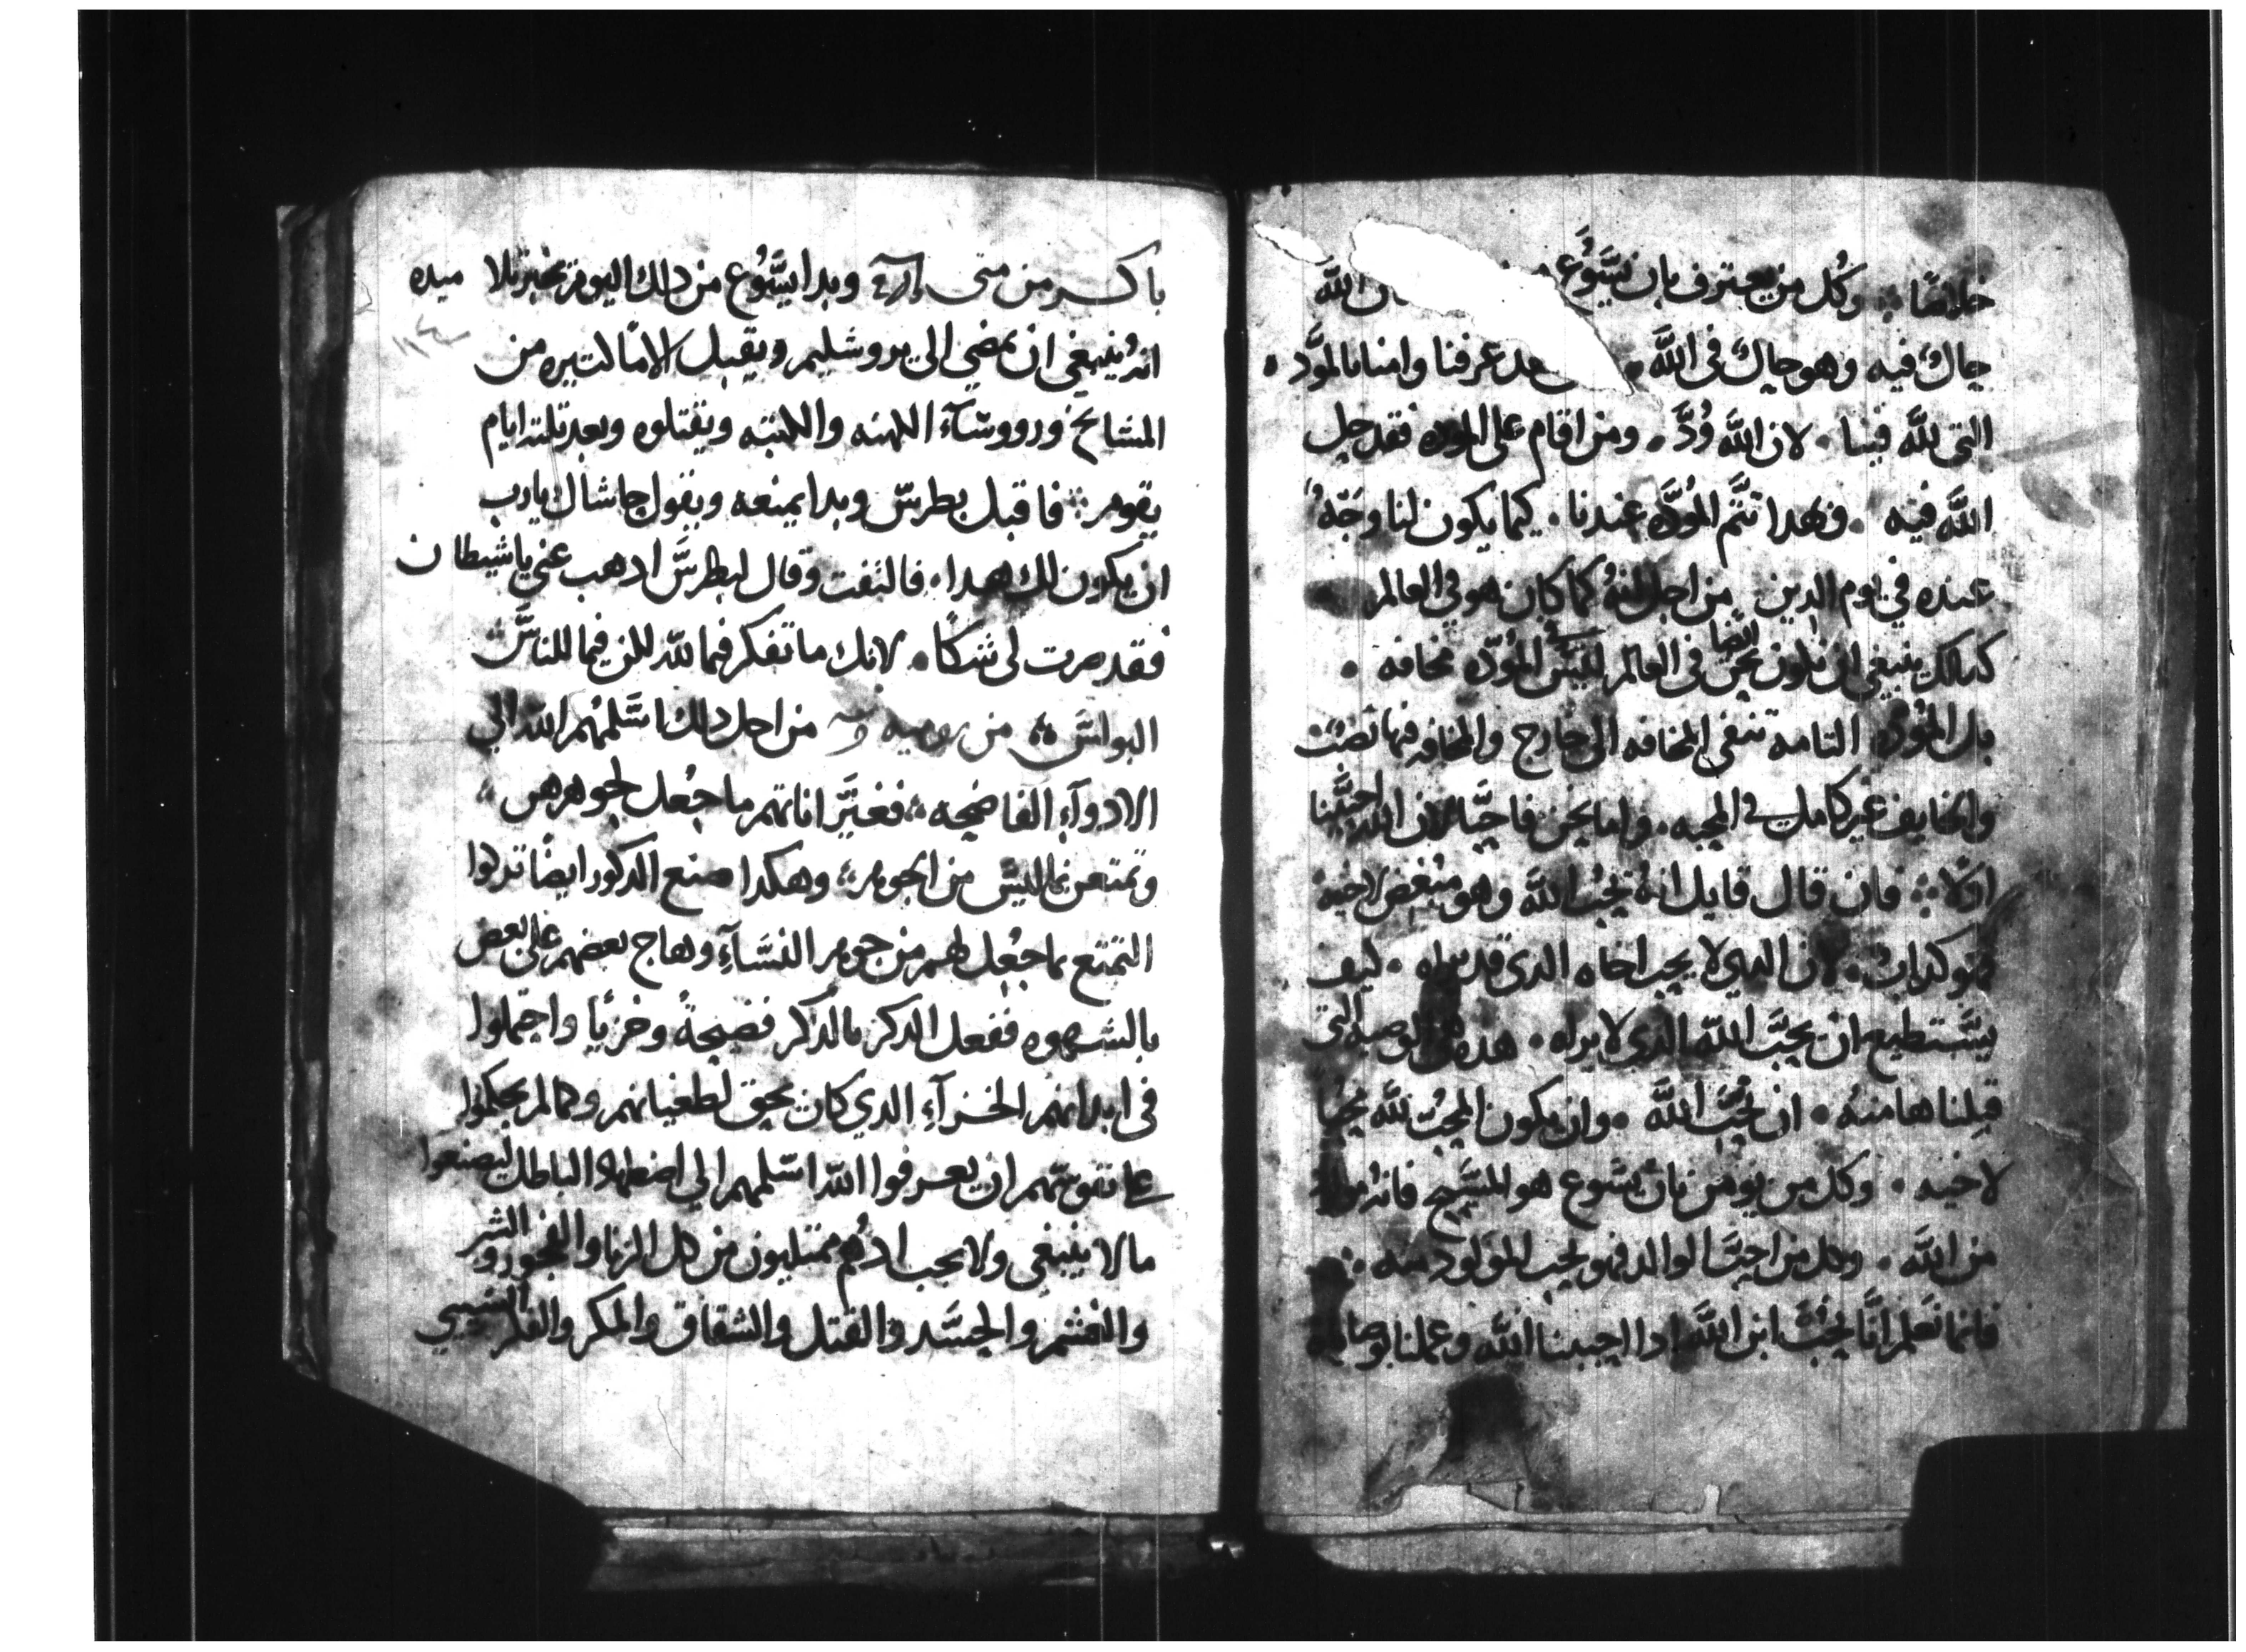 خلاصًا ؞ وكُل من يعترف بان يسَّوُع الله
حِالٌ فيه وهو حِالٌ في اللَّه . عرفنا وامنا بالموَّده .
التى للَّه فينا . لان اللَّه وُدَّ . ومن اقام على الموده فقد حل
اللَّه فيه . وبهدا تتَّم المُودَّه عندنا . كيما يكون لنا وَجَهٌ
عنده في يوم الدين من اجل انهُ كما كان هو في العالم
كدالك ينبغي ان نكون نحن ايضا في العالم ليسَّ في المُودَّه مخافه .
بل المُودَّه التامه تنفى المخافه الى خارج والمخافه فيها نَصَبٌ
والخايف غير كامل في المحبه . واما نحن فاحبَّ لان اللَّه احبَّنا
اوّلاً ؞ فان قال قايل انهُ يُحِبُ اللَّه وهو مُبغِض لاخيه
فهو كدابٌ . لان الدي لا يحب اخاه الدى قد يراه . كيف
يسَّتطيع ان يحبَّ اللَّه الدي لا يراه . هده هي الوصيه التى
قِبلنا ها منهُ . ان نُحبَّ اللَّه . وان يكون المحِبُ للَّه مُحبًا
لاخيه . وكل من يومن بان يسَّوع هو المسَّيح فانهُ مولود
من اللَّه . وكل من احبَّ الوالد فهو يحب المولود منه ؞
فانما نَعلم انَّا نُحبُّ ابن اللَّه ادا احببنا اللَّه وعملنا بوصاياه
باكر من متى وبدا يسَّوُع من دلك اليوم يخبر تلاميده
انهُ ينبغي ان يمضي الى يروشليم ويقبل الامًا كتيره من
المشايخ ورووسّآء الكهنه والكتبه ويقتلوه وبعد تلتة ايام
يقوم ؞ فاقبل بطرسّ وبدا يمنعه ويقول حاشاك يارب
ان يكون لك هدا . فالتفت وقال لبطرسَّ ادهب عني يا شيطان
فقد صرت لى شكاً . لانك ما تفكر فيما للّه لكن فيما للناسَّ ؞
البولسَّ ؞ من روميه من اجل دلك اسَّلمهُم اللّه الي
الادوآءِ الفاضحه ؞ فغيَّر اناتهم ما جُعل لجوهرهن ؞
وتمتعن بما ليسّ من الجوهر ؞ وهكدا صنع الدكور ايضًا تركوا
التمتع بما جُعِل لهم من جوهر النسَّآءِ وهاج بعضهم على بعض
بالشهوه ففعل الدكر بالدكر فضيحةً وخزيًا واحتملوا
في ابدانهم الجزآءِ الدي كان يحق لطغيانهم وكما لم يحكموا
على نفوسَّهم ان يعرفوا اللّه اسّلمهم الي اضطهاد الباطل ليصنعوا
ما لا ينبغي ولا يجب ادهُم ممتليون من كل الزنا والفجور والشر
والغشم والحسَّد والقتل والشقاق والمكر والفكر السيي